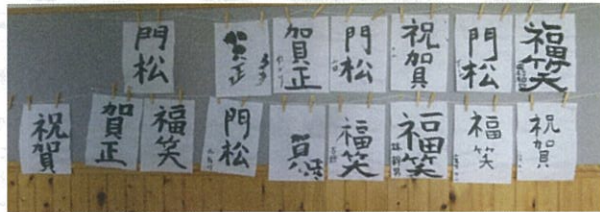 門松
賀正
賀正
門松
祝賀
門松
福笑
祝賀
賀正
福笑
門松
福笑
福笑
福笑
祝賀